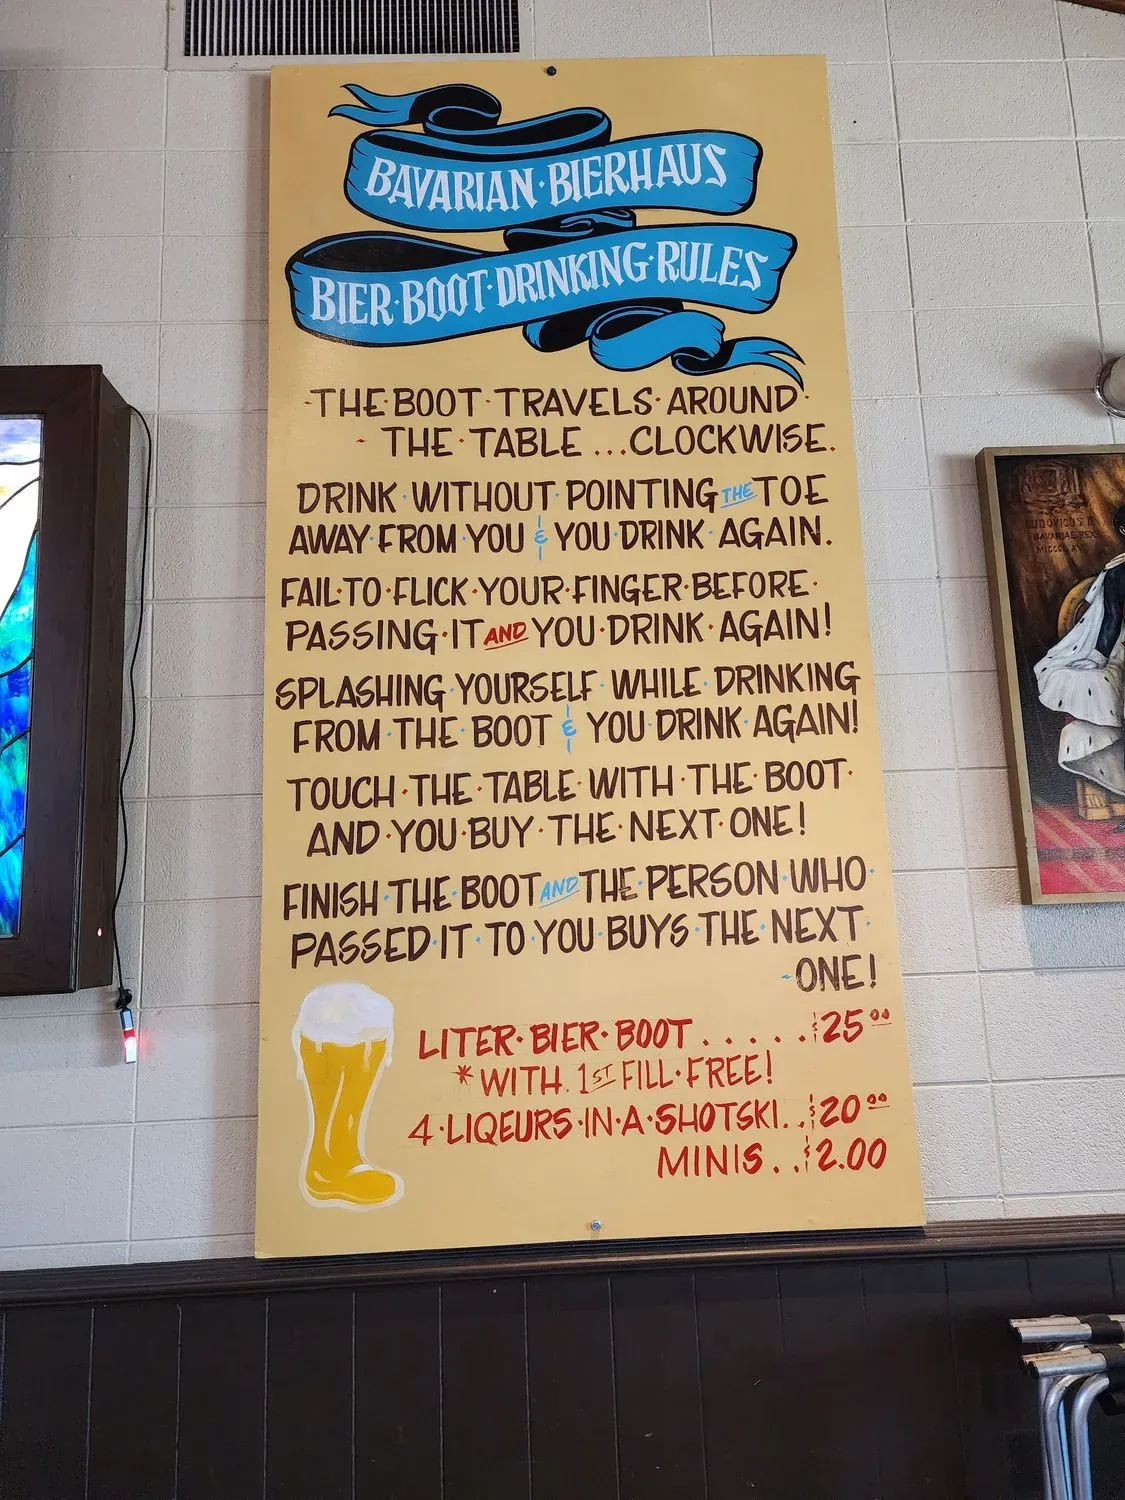 BAVARIAN·BIERHAUS
BIER·BOOT·DRINKING·RULES
-THE·BOOT·TRAVELS·AROUND·
- THE·TABLE ...CLOCKWISE.
DRINK·WITHOUT·POINTING THE TOE
AWAY·FROM·YOU & YOU·DRINK·AGAIN.
FAIL·TO·FLICK·YOUR·FINGER·BEFORE·
PASSING·IT AND YOU·DRINK·AGAIN!
SPLASHING·YOURSELF·WHILE·DRINKING
FROM·THE·BOOT & YOU·DRINK·AGAIN!
TOUCH·THE·TABLE·WITH·THE·BOOT·
AND·YOU·BUY·THE·NEXT·ONE!
FINISH·THE·BOOT AND THE·PERSON·WHO·
PASSED·IT·TO·YOU·BUYS·THE·NEXT·
-ONE!
LITER·BIER·BOOT.....$25.00
*WITH.1ST FILL·FREE!
4·LIQEURS·IN·A·SHOTSKI..$20.00
MINIS..$2.00
LUDOVICUS II
BAVARIAE REX